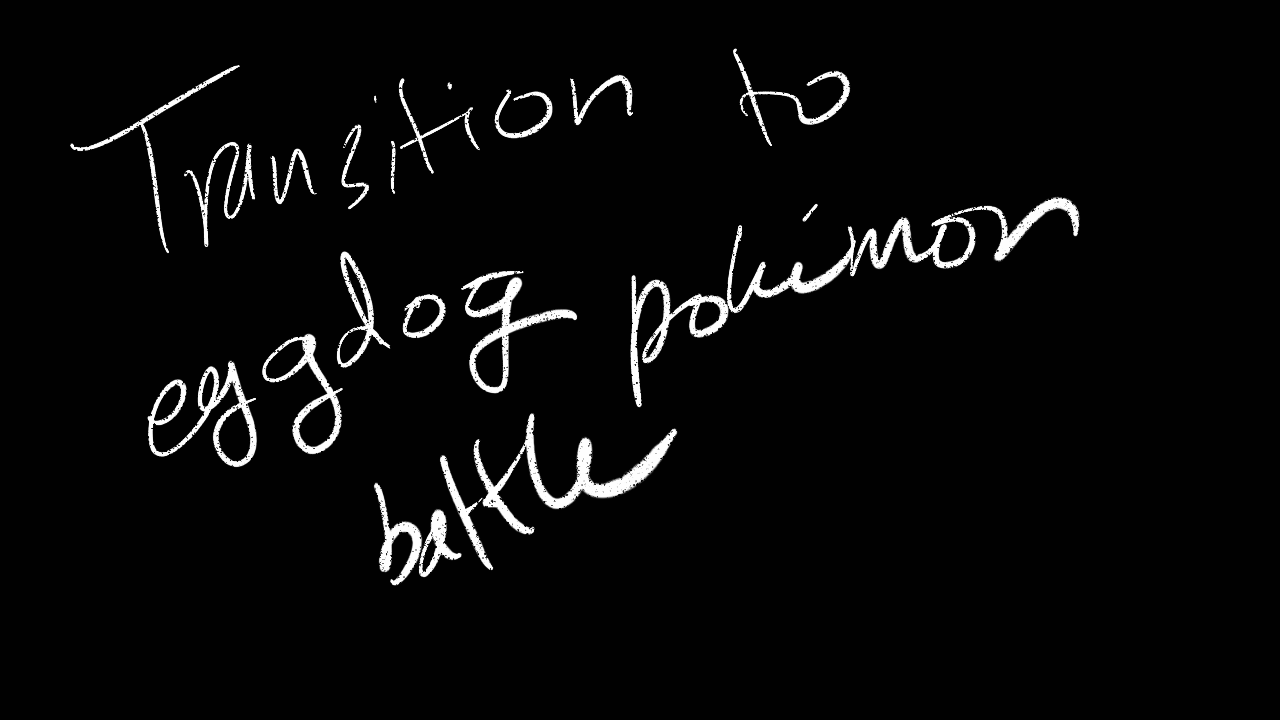 Transition to
eggdog pokémon
battle